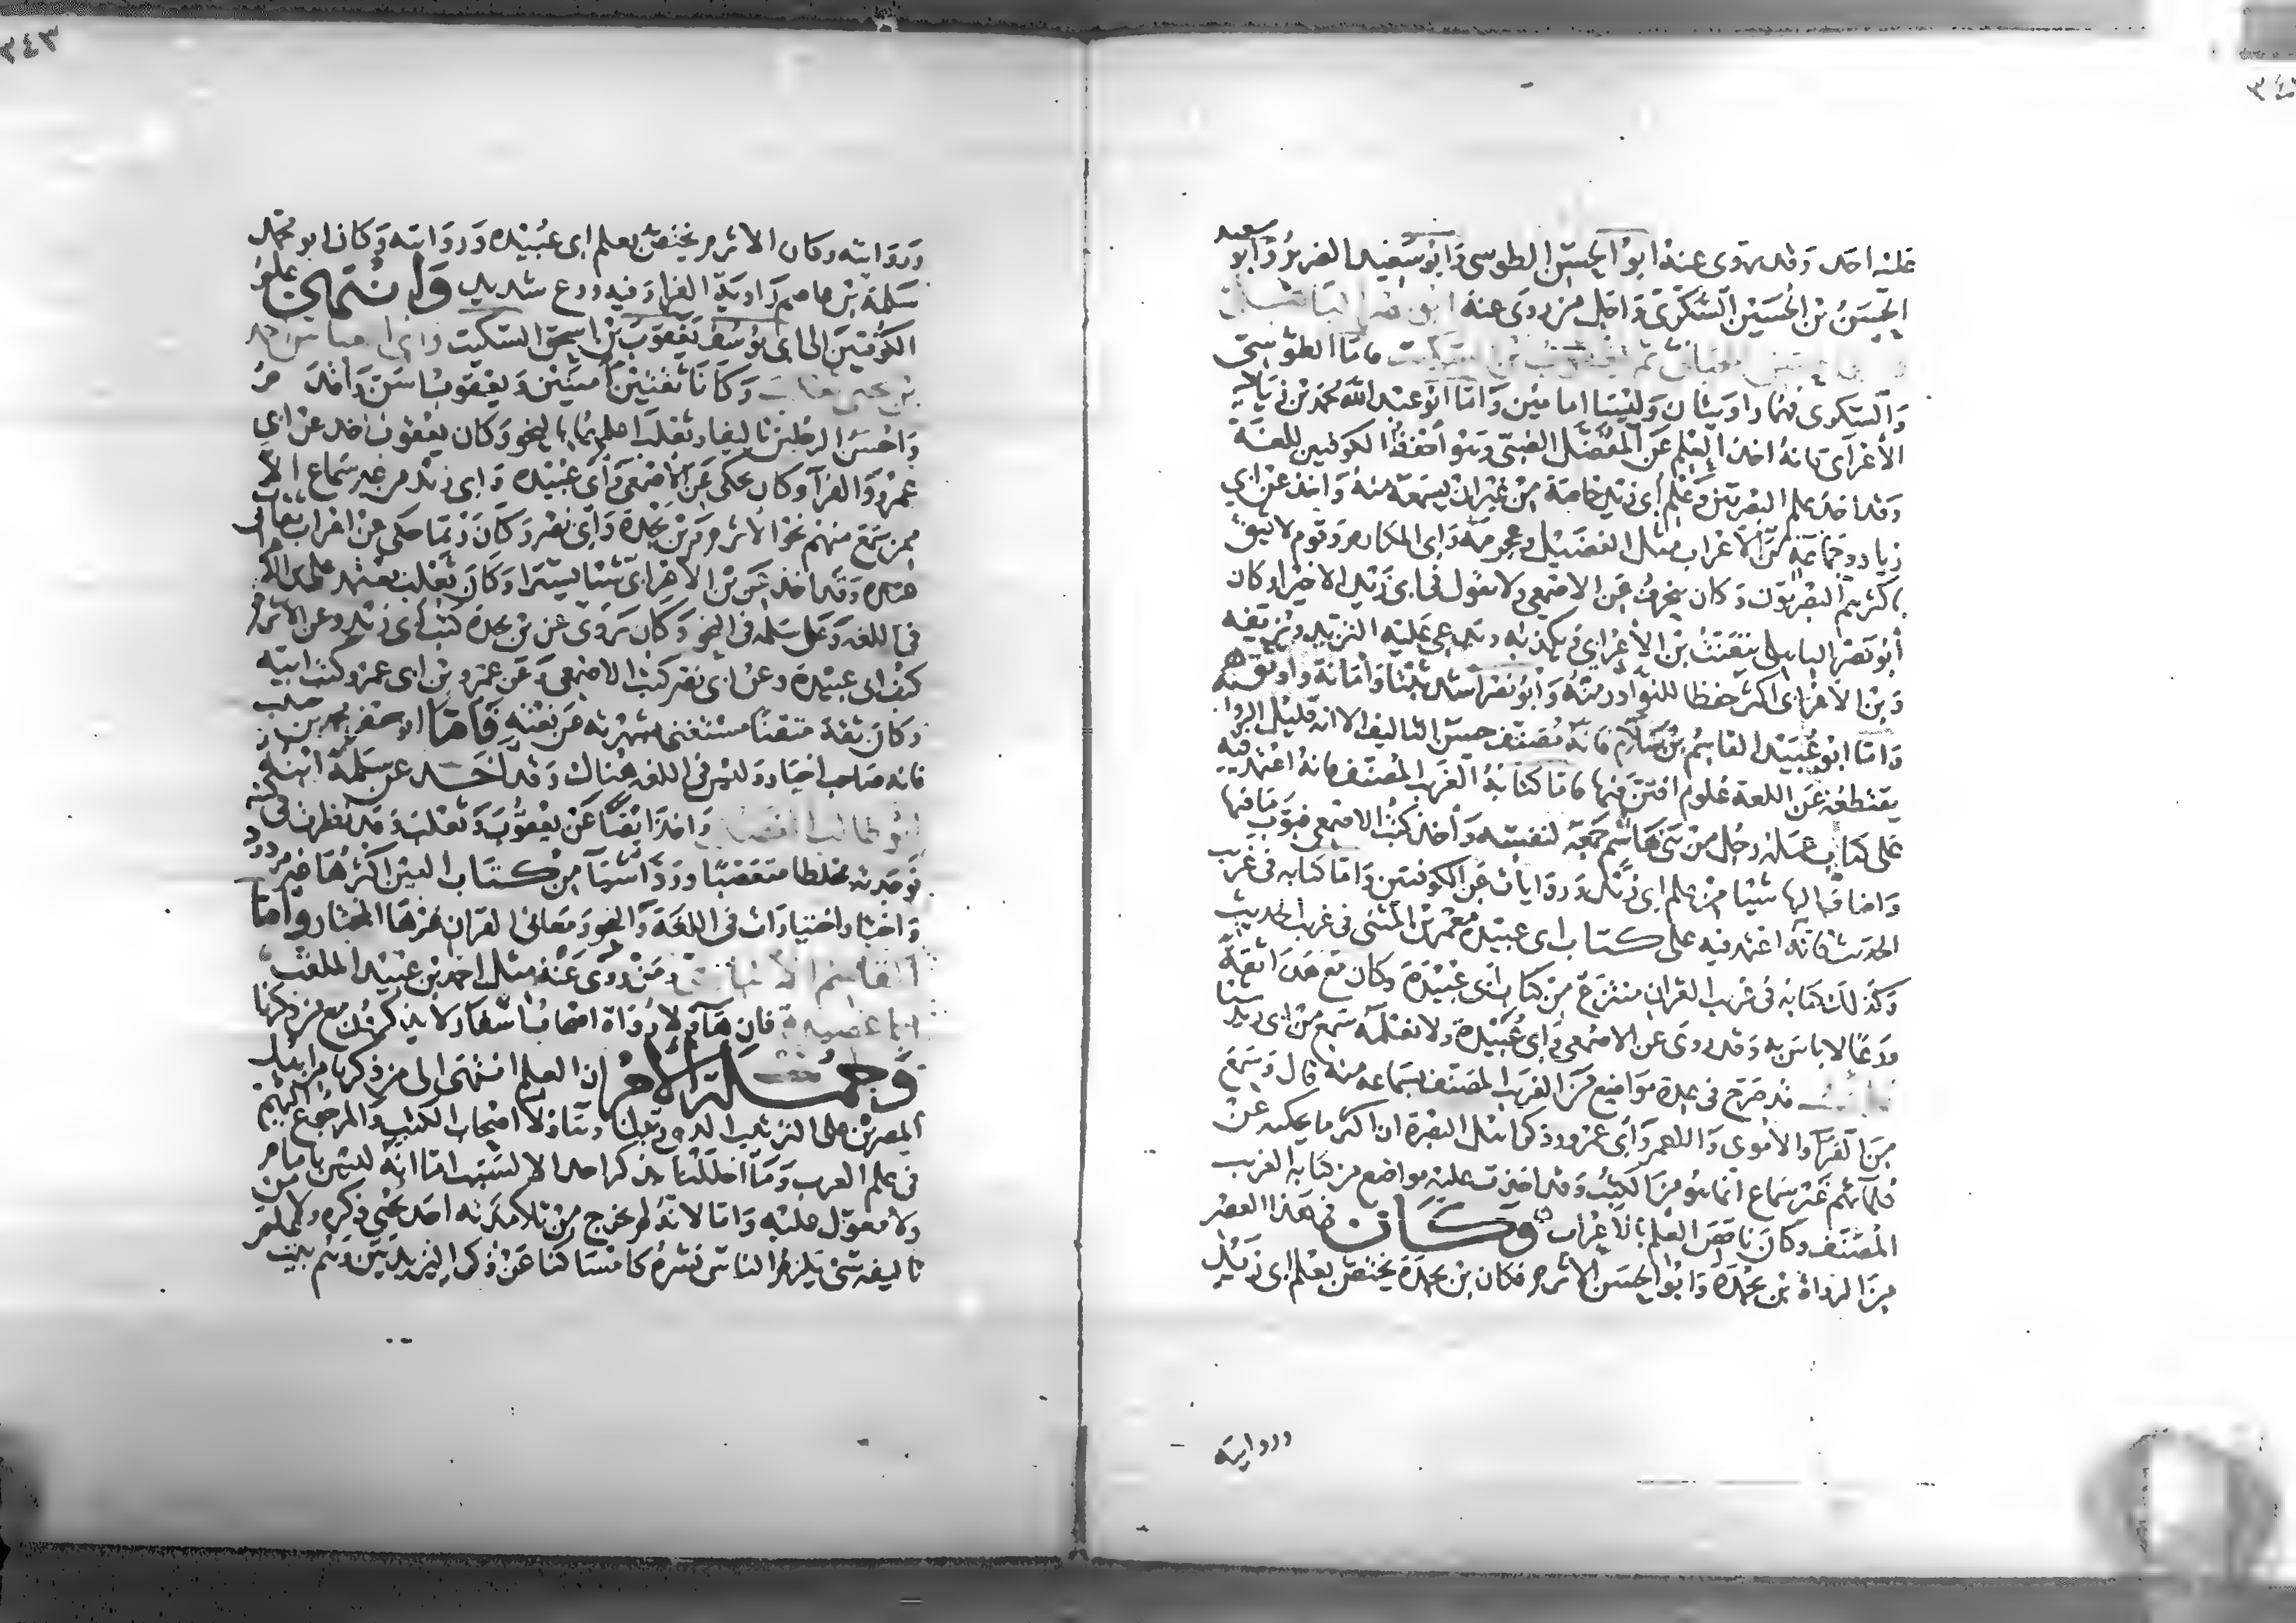 عليه احد وقد روى عنه ابو الحسن الطوسي وابو سعيد الضرير وابو سعيد
الحسن بن الحسين السكري واجل من روى عنه ابو
ثم يعقوب بن السكيت فاما الطوسي
والسكري فهما راويتان وليسا امامين واما ابو عبد الله محمد بن زياد
الأعرابي فانه اخذ العلم عن المفضل الضبي وهو أحفظ الكوفيين للغة
وقد اخذ علم البصريين وعلم أبي زيد خاصة من غير ان يسمعه منه واخذ عن ابي
زياد وجماعة من الأعراب مثل الفضيل وعجرمة وابي المكارم وقوم لا يثق
باكثرهم البصريون وكان ينحرف عن الاصمعي ولا يقول في ابي زيد الا خيرا وكان
أبو نصر الباهلي يتعنت بن الأعرابي ويكذبه ويدعي عليه التزيد ويزيفه
وبن الأعرابي اكثر حفظا للنوادر منه وأبو نصر اشد تثبتا وأمانة واوثق
واما ابو عبيد القاسم بن سلام فانه مصنف حسن التاليف الا انه قليل الروا
يقتطعه عن اللغة علوم افتن فيها فاما كتابه الغريب المصنف فانه اعتمد فيه
على كتاب عمله رجل من بني هاشم جمعه لنفسه وأخذ كتب الاصمعي فبوب ما فيها
واضاف اليها شيئا من علم ابي زيد وروايات عن الكوفيين واما كتابه في غريب
الحديث فانه اعتمد فيه على كتاب ابي عبيدة معمر بن المثنى في غريب الحديث
وكذلك كتابه في غريب القران منتزع من كتاب أبي عبيدة وكان مع هذا ثقة
ورعا لا باس به وقد روى عن الاصمعي وأبي عبيدة ولا نعلمه سمع من ابي زيد شيئا
قد صرح في عدة مواضع من الغريب المصنف بسماعه منه قال وسمع
من الفرا والأموي والاحمر وأبي عمرو وذكر اهل البصرة ان اكثر ما يحكيه عن
علمائهم غير سماع انما هو من الكتب وقد اخذت عليه مواضع من كتابه الغريب
المصنف وكان ناقص العلم بالاعراب وكان في هذا العصر
من الرواة بن نجدة وابو الحسن الاثرم فكان بن نجدة يختص بعلم ابي زيد
وروايته
وروايته وكان الاثرم يختص بعلم ابي عبيدة وروايته وكان ابو محمد
سلمة بن عاصم راوية الفرا وفيه ورع شديد وانتهى علم
الكوفيين الى ابي يوسف يعقوب بن اسحق السكيت وابي العباس احمد
بن يحيى ثعلب وكانا ثقتين امينين ويعقوب اسن وأقدم
واحسن الرجلين تاليفا وثعلب اعلمهما بالنحو وكان يعقوب اخذ عن ابي
عمرو والفرآ وكان يحكي عن الأصمعي وأبي عبيدة وابي زيد من غير سماع الا
ممن سمع منهم نحو الاثرم وبن نجدة وأبي نصر وكان ربما حكى عن اعراب ثقات
عنده وقد اخذ عن بن الاعرابي شيئا يسيرا وكان ثعلب يعتمد على بن الا
في اللغه وعلى سلمه في النحو وكان يروي عن بن نجدة كتب أبي زيد وعن الاثرم
كتب ابي عبيدة وعن ابي نصر كتب الاصمعي وعن عمرو بن ابي عمرو كتب ابيه
وكان ثقة متقنا مستغنى بشهرته عن نعته فاما ابو جعفر محمد بن حبيب
فانه صاحب اخبار وليس في اللغه هناك وقد اخذ عن سلمة ابنه
ابو طالب المفضل واخذ ايضا عن يعقوب وثعلب وقد نظرت في كتبه
فوجدته مخلطا متعصبا ورد أشيآ من كتاب العين اكثرها غير مردود
واختار اختيارات في اللغة والنحو ومعاني القران غيرها المختار واما
القاسم الانباري ومن روى عنه مثل احمد بن عبيد الملقب
ابا عصيدة فان هآولا رواة اصحاب اسفار لا يذكرون مع من ذكرنا
وجملة الأمر ان العلم انتهى الى من ذكرنا من اهل
المصرين على الترتيب الذي رتبناه وهاولا اصحاب الكتب والمرجوع اليهم
في علم العرب وما أخللنا بذكر احد الا لسبب اما انه ليس بامام
ولا معول عليه واما لانه لم يخرج من تلامذته احد يحيي ذكره ولا من
تاليفه شي يلزم الناس نشره كامساكنا عن ذكر اليزيديين وهم بيت